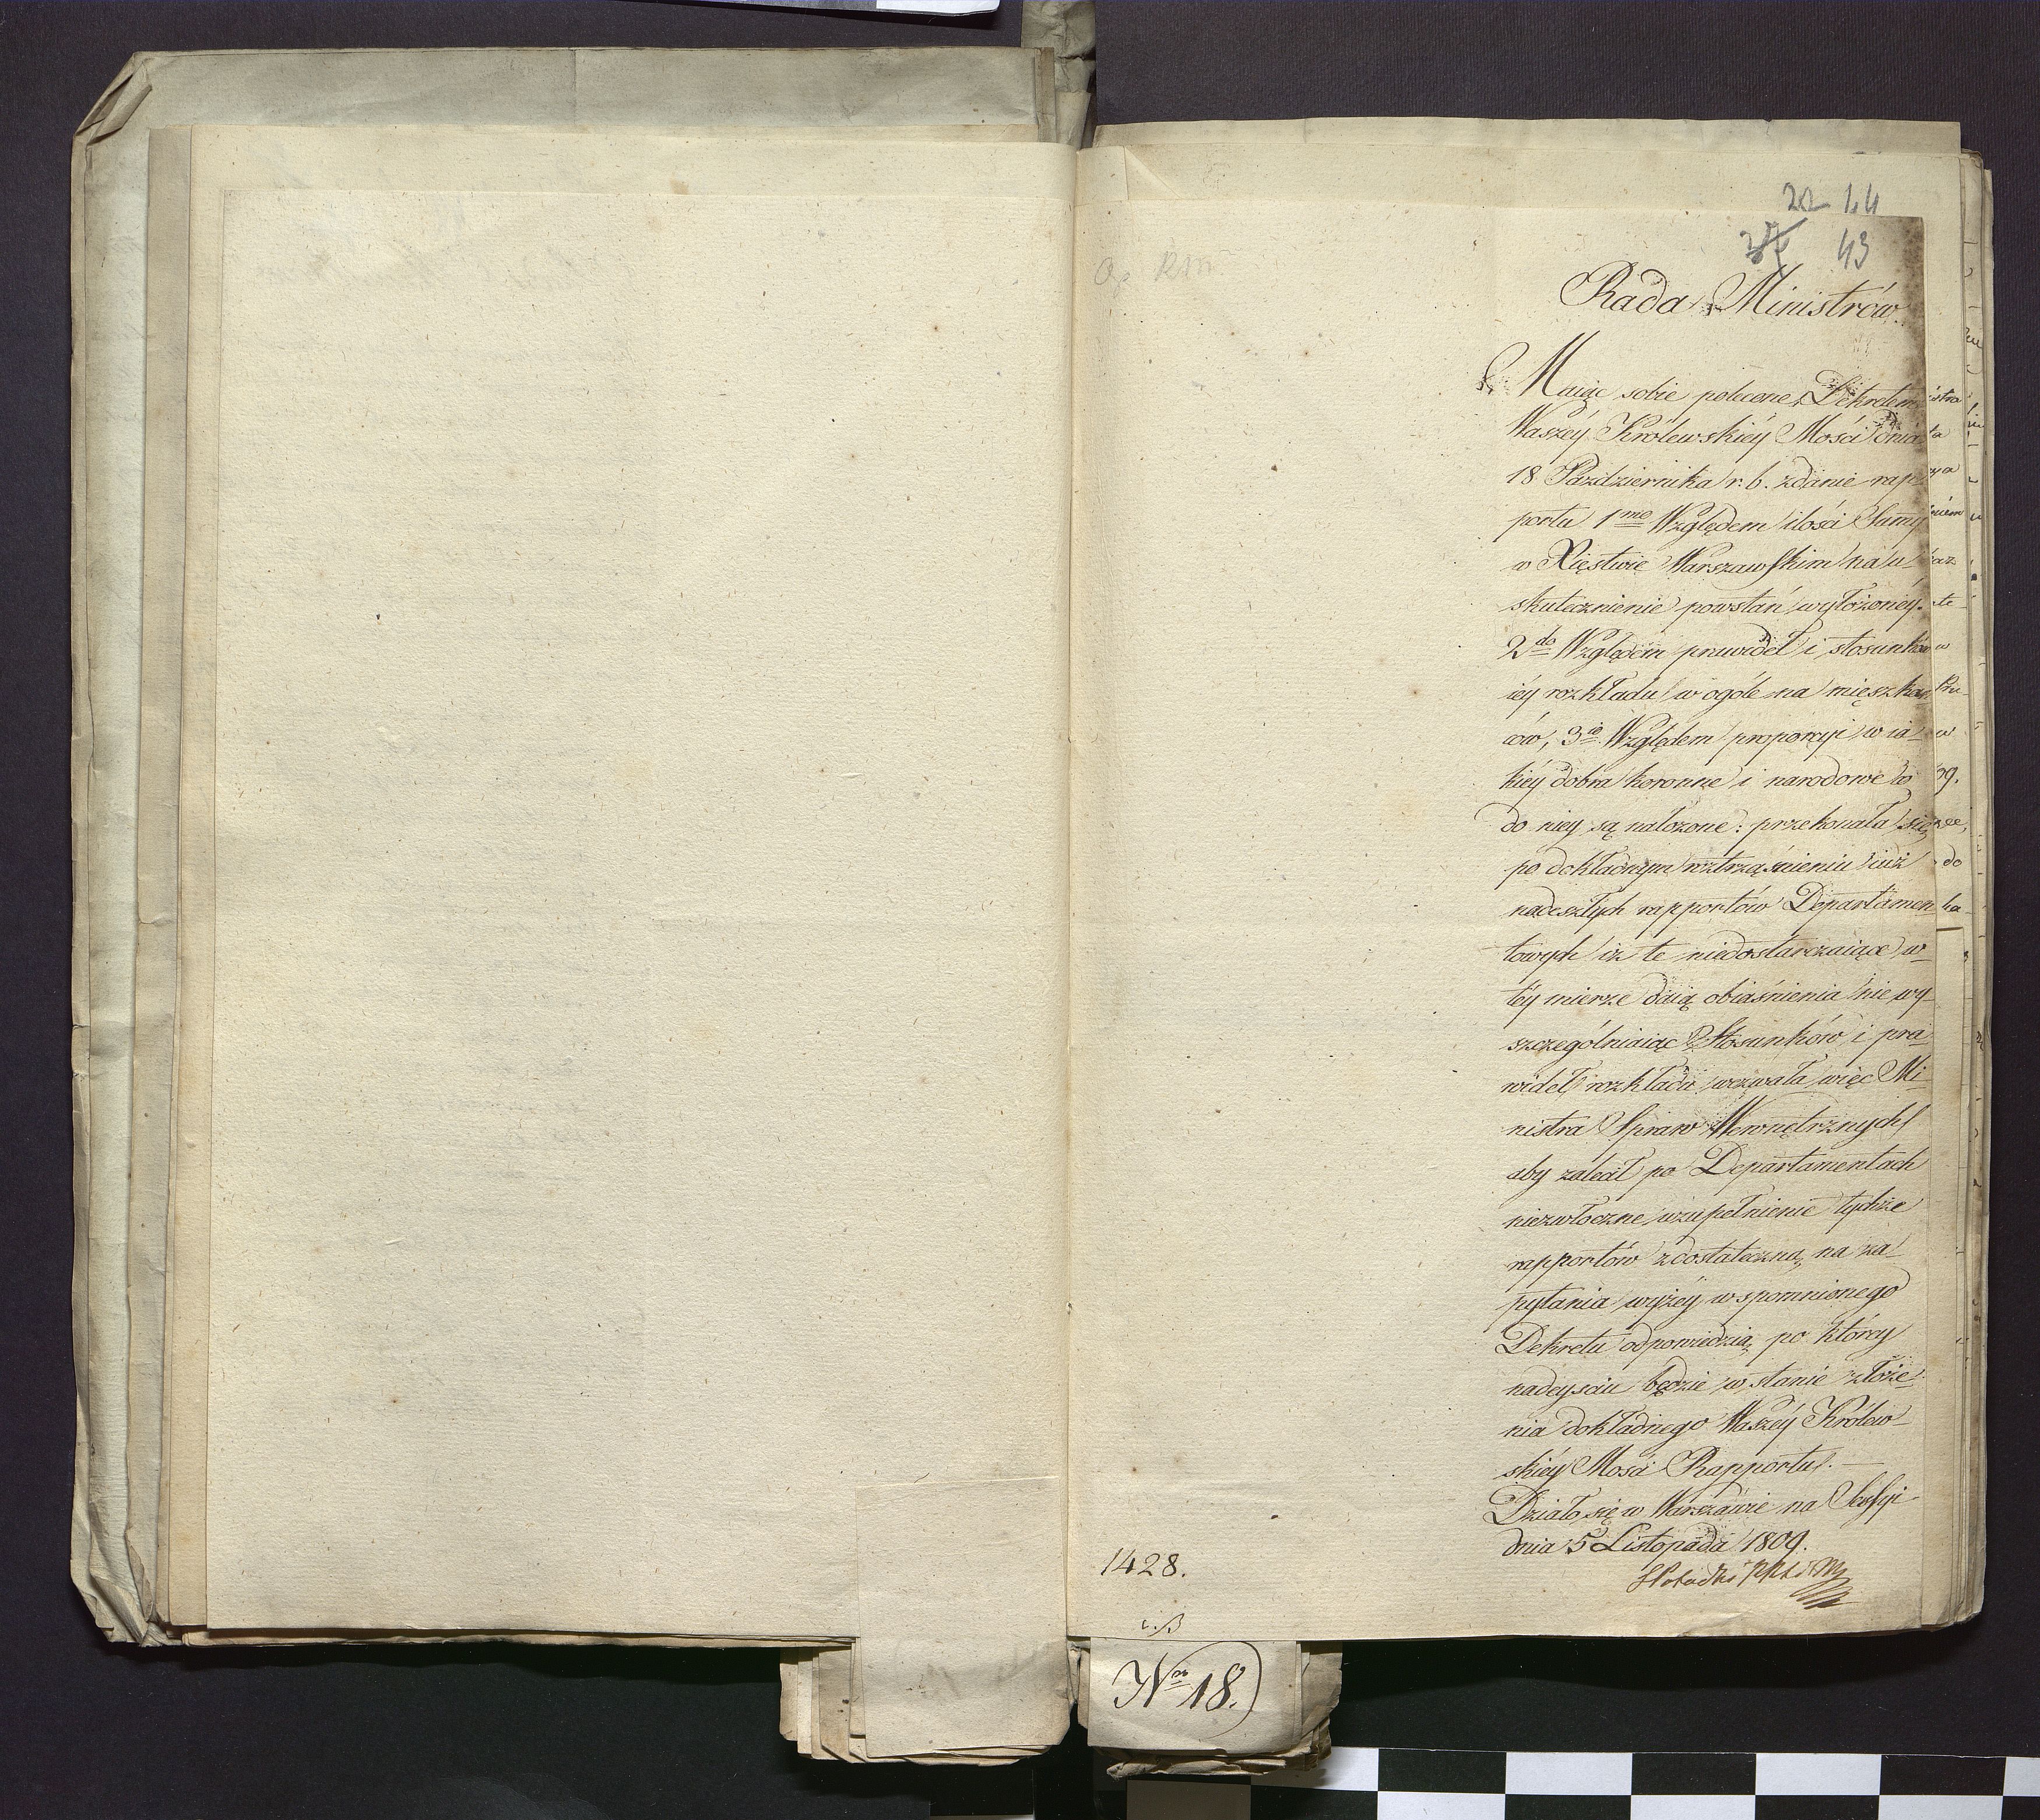 22 44
43
Rada Ministrów
Maiąc sobie polecone Dekretem
Waszéy Królewskiéy Mości dnia
18 Października r. b. zdanie rap
portu 1mo Względem ilości Summy
w Xięstwie Warszawskim na u-
skutecznienie powstań wyłożonéy.
2do Względem prawideł i stosunków
iéy rozkładu w ogóle na mięszkań
ców, 3io Względem proporcyi w ia-
kiéy dobra koronne i narodowe
do niey są nałożone: przekonała się
po dokładnym roztrząśnieniu iuż
nadeszłych rapportów Departamen
towych iż te niedostarczaiące w-
téy mierze daią obiaśnienia nie wy-
szczególniaiąc Stosunków i pra-
wideł rozkładu wezwała więc Mi-
nistra Spraw Wewnętrznych
aby zalecił po Departamentach
niezwłoczne uzupełnienie tychże
rapportów zdostateczną na za-
pytania wyżéy wspomnionego
Dekretu odpowiedzią, po któréy
nadeyściu będzie w stanie złoże-
nia dokładnego Waszéy Królew-
skiéy Mości Rapportu. —
Działo się w Warszawie na Sessyi
dnia 5 Listopada 1809.
1428.
Nro 18.